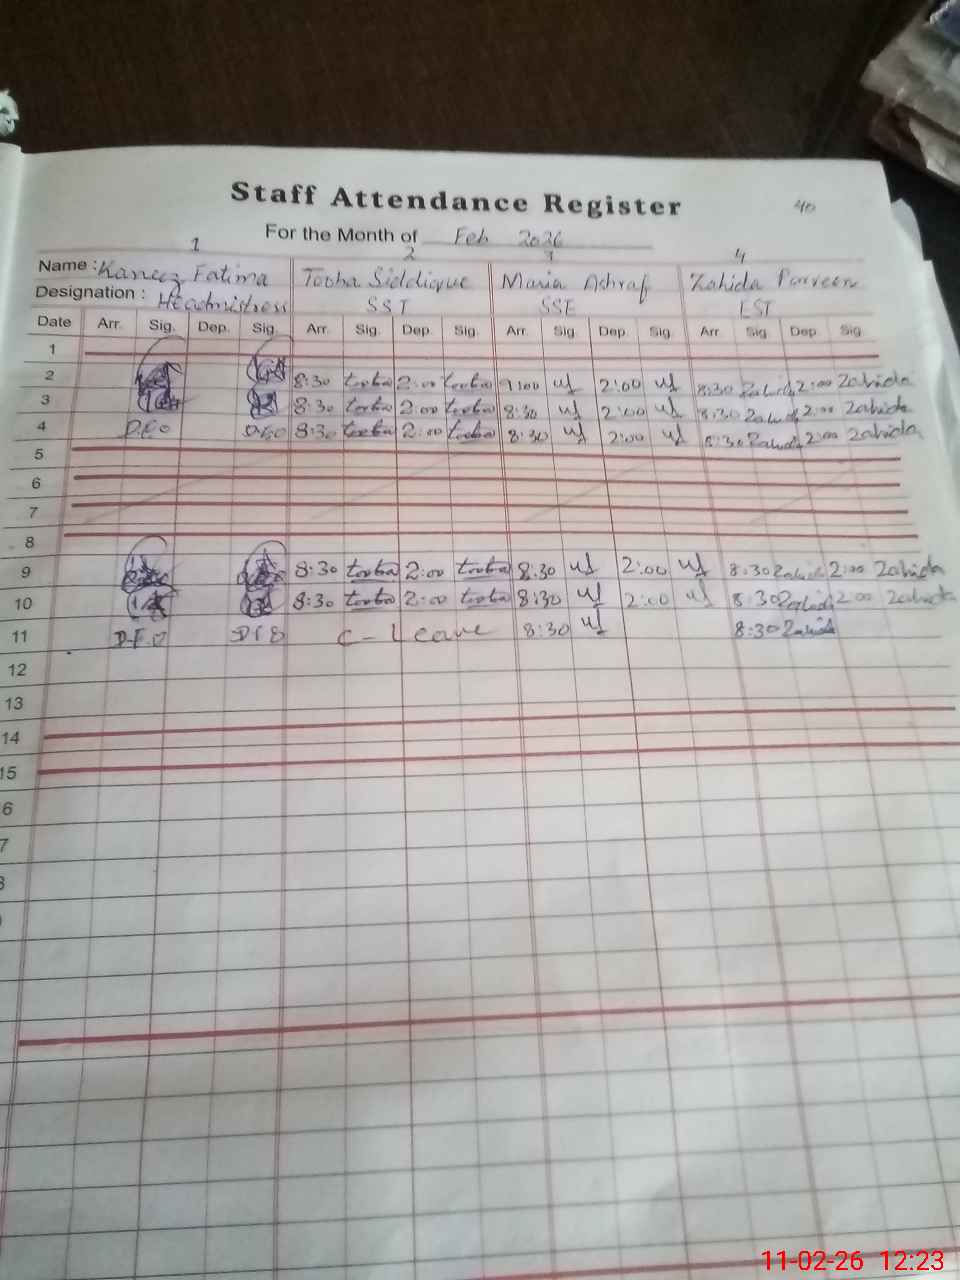 Staff Attendance Register
40
For the Month of Feb 2026
1 2 3 4
Name : Kaneez Fatima Tooba Siddique Maria Ashraf Zahida Parveen
Designation : Headmistress SST SSE EST
Date Arr. Sig. Dep. Sig. Arr. Sig. Dep. Sig. Arr. Sig. Dep. Sig. Arr. Sig. Dep. Sig.
1
2 8:30 tooba 2:00 tooba 9:00 2:00 8:30 Zahida 2:00 Zahida
3 8:30 tooba 2:00 tooba 8:30 2:00 8:30 Zahida 2:00 Zahida
4 D.E.O DEO 8:30 tooba 2:00 tooba 8:30 2:00 8:30 Zahida 2:00 Zahida
5
6
7
8
9 8:30 tooba 2:00 tooba 8:30 2:00 8:30 Zahida 2:00 Zahida
10 8:30 tooba 2:00 tooba 8:30 2:00 8:30 Zahida 2:00 Zahida
11 C-Leave 8:30 8:30 Zahida
12
13
14
15
6
7
11-02-26 12:23